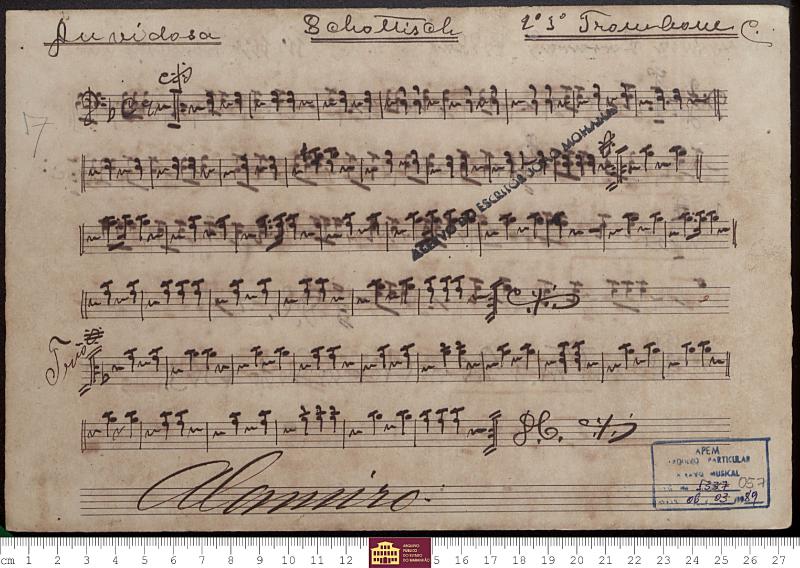 Duvidosa Schottisch 2º 3º Trombone C.
7
ACERVO DO ESCRITOR JOÃO MOHANA
Trio
D.C.
Alamiro
APEM
ARQUIVO PARTICULAR
ACERVO MUSICAL
1337 057
06 03 1989
cm 1 2 3 4 5 6 7 8 9 10 11 12 5 16 17 18 19 20 21 22 23 24 25 26 27
ARQUIVO
PÚBLICO
DO ESTADO
DO MARANHÃO